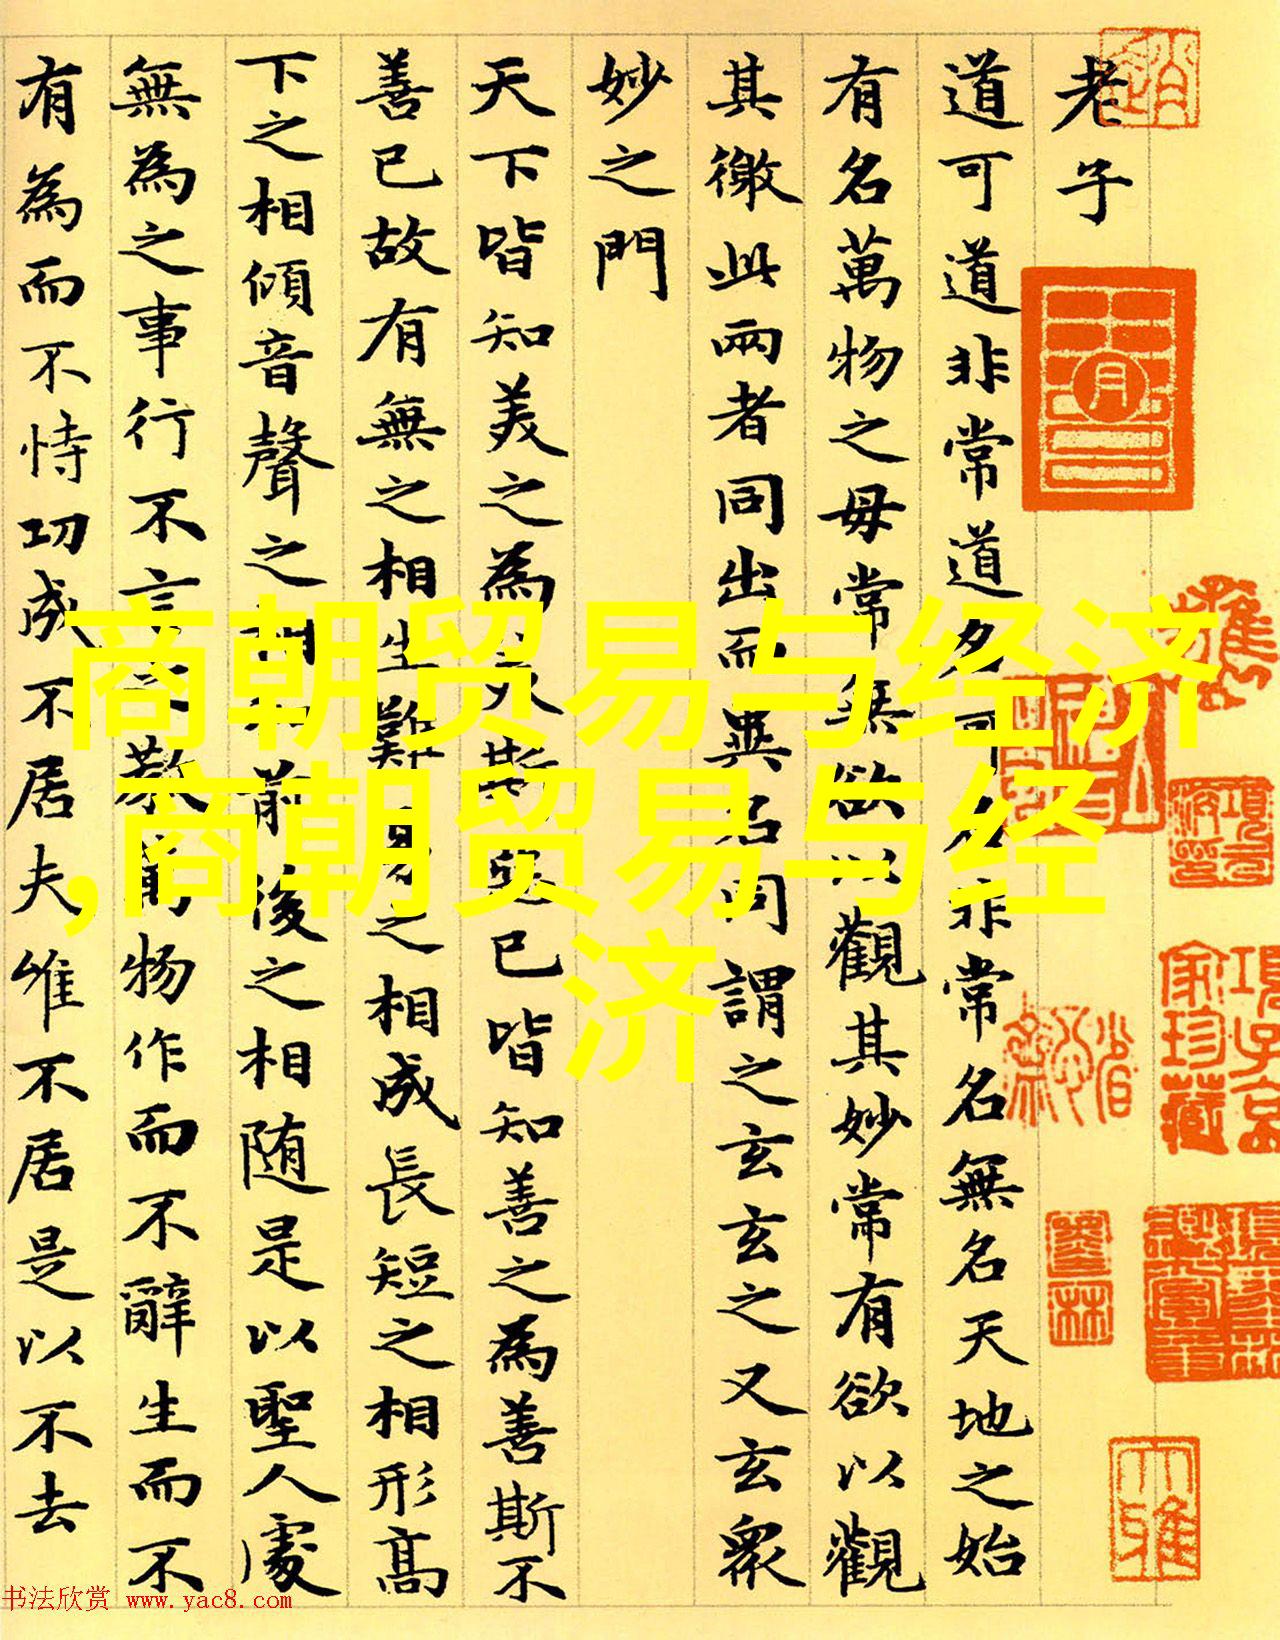 老子
道可道非常道名可名非常名無名天地之始
有名萬物之母常無欲以觀其妙常有欲以觀
其徼此兩者同出而異名同謂之玄玄之又玄衆
妙之門
天下皆知美之為美斯惡已皆知善之為善斯不
善已故有無之相生難易之相成長短之相形高
下之相傾音聲之相和前後之相随是以聖人處
無為之事行不言之教萬物作而不辭生而不
有為而不恃功成不居夫唯不居是以不去
商朝贸易与经济
,商朝贸易与经
济
項子京家珍藏
大雅
书法欣赏 www.yac8.com